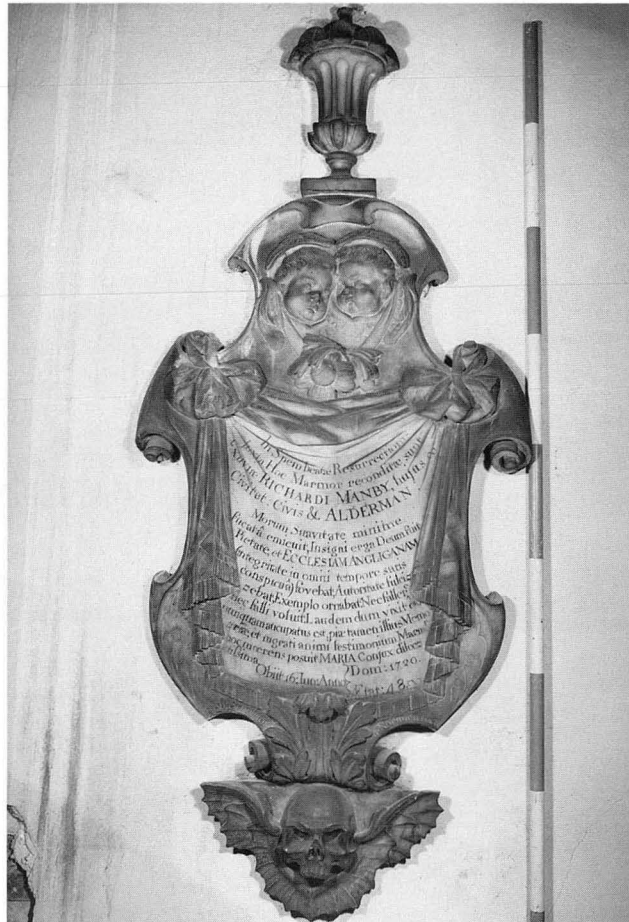 In Spem beatæ Resurrection
Juxta Hoc Marmor reconditæ sunt
Exuviæ RICHARDI MANBY, hujus
Civitat: Civis & ALDERMAN
Morum Suavitate minime
fucatâ emicuit, Insigni erga Deum fuit
Pietate, et ECCLESIAM ANGLICANAM
Integritate in omni tempore satis
conspicuâ) fovebat, Autoritate
Exemplo ornabat, Nec fallere
nec falli voluit. Laudem dum vixit
nunquam aucupatus est, præ tamen illius
et ingrati animi testimonium Marmor
hoc mœrens posuit MARIA Conjux
Obiit 16: Jun: Anno Dom: 1720.
Ætat: 48